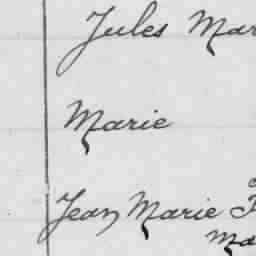 Jules Mar
Marie
Jean Marie
Ma